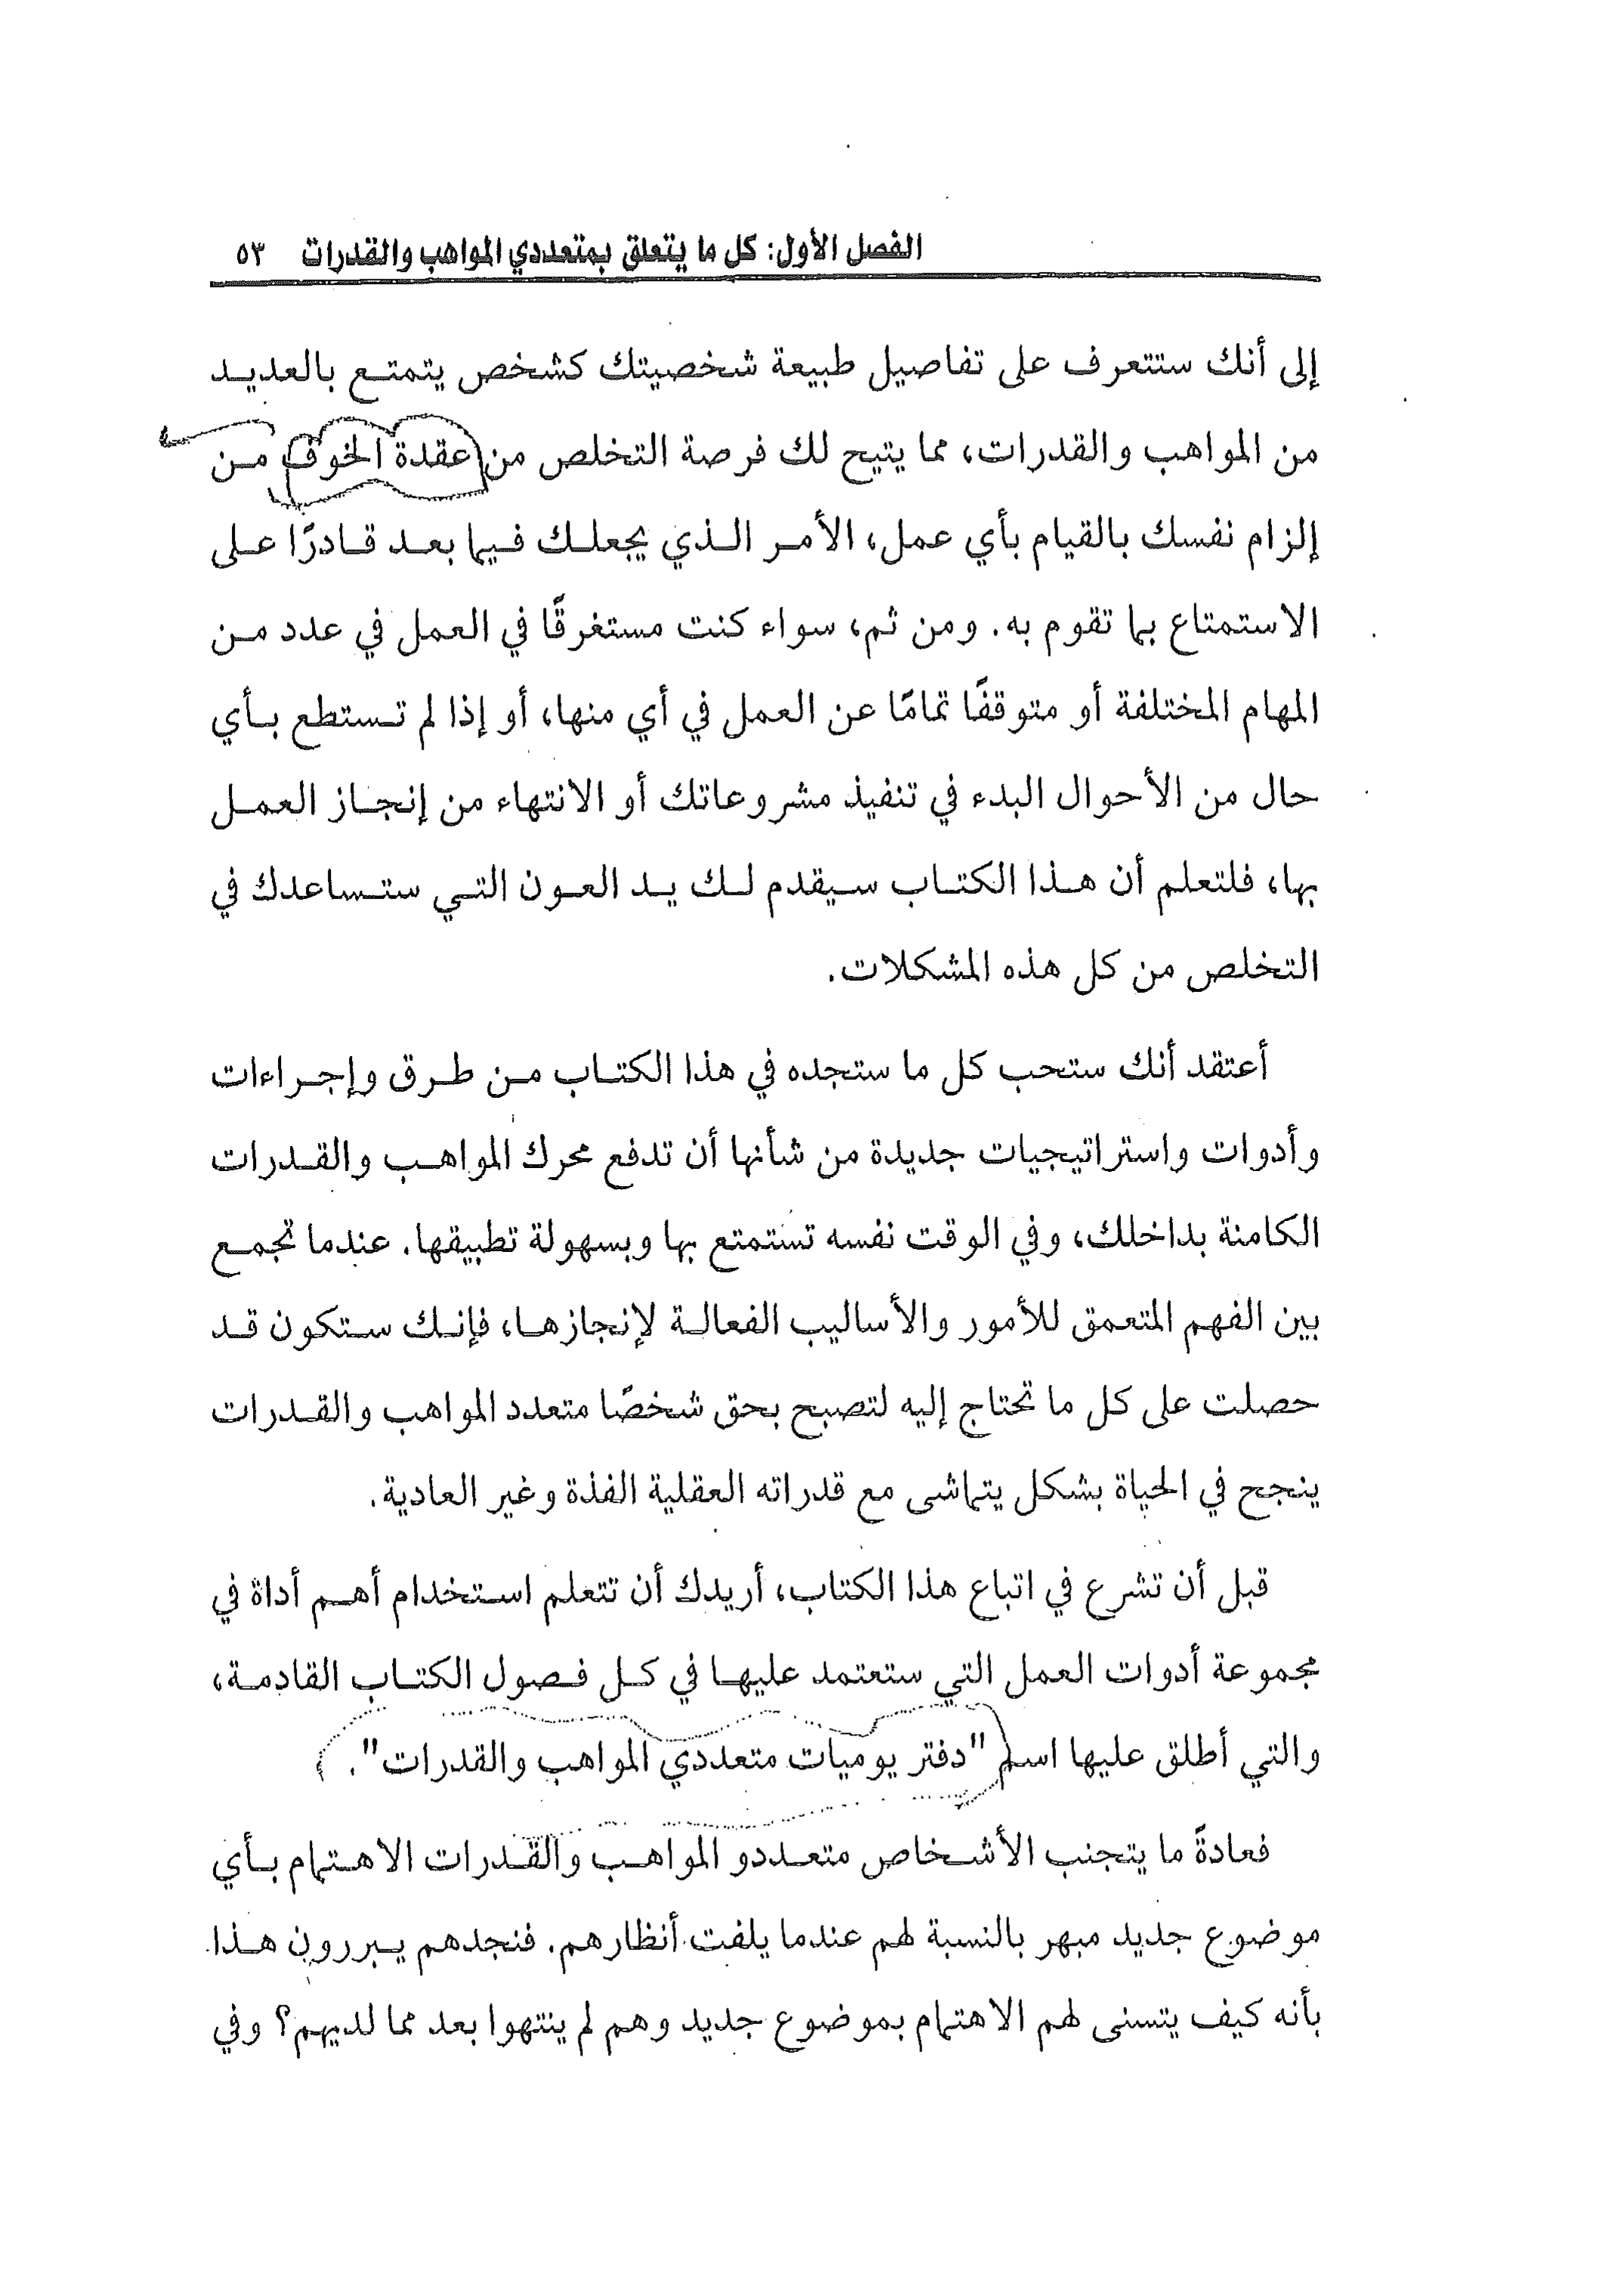 الفصل الأول: كل ما يتعلق بمتعددي المواهب والقدرات ٥٣
إلى أنك ستتعرف على تفاصيل طبيعة شخصيتك كشخص يتمتع بالعديد
من المواهب والقدرات، مما يتيح لك فرصة التخلص من عقدة الخوف من
إلزام نفسك بالقيام بأي عمل، الأمر الذي يجعلك فيما بعد قادرًا على
الاستمتاع بما تقوم به. ومن ثم، سواء كنت مستغرقًا في العمل في عدد من
المهام المختلفة أو متوقفًا تمامًا عن العمل في أي منها، أو إذا لم تستطع بأي
حال من الأحوال البدء في تنفيذ مشروعاتك أو الانتهاء من إنجاز العمل
بها، فلتعلم أن هذا الكتاب سيقدم لك يد العون التي ستساعدك في
التخلص من كل هذه المشكلات.
أعتقد أنك ستحب كل ما ستجده في هذا الكتاب من طرق وإجراءات
وأدوات واستراتيجيات جديدة من شأنها أن تدفع محرك المواهب والقدرات
الكامنة بداخلك، وفي الوقت نفسه تستمتع بها وبسهولة تطبيقها. عندما تجمع
بين الفهم المتعمق للأمور والأساليب الفعالة لإنجازها، فإنك ستكون قد
حصلت على كل ما تحتاج إليه لتصبح بحق شخصًا متعدد المواهب والقدرات
ينجح في الحياة بشكل يتماشى مع قدراته العقلية الفذة وغير العادية.
قبل أن تشرع في اتباع هذا الكتاب، أريدك أن تتعلم استخدام أهم أداة في
مجموعة أدوات العمل التي ستعتمد عليها في كل فصول الكتاب القادمة،
والتي أطلق عليها اسم "دفتر يوميات متعددي المواهب والقدرات".
فعادةً ما يتجنب الأشخاص متعددو المواهب والقدرات الاهتمام بأي
موضوع جديد مبهر بالنسبة لهم عندما يلفت أنظارهم. فنجدهم يبررون هذا
بأنه كيف يتسنى لهم الاهتمام بموضوع جديد وهم لم ينتهوا بعد مما لديهم؟ وفي